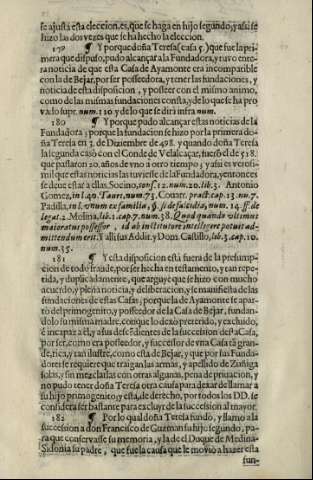 se ajusta esta eleccion, es, que se haga en hijo segundo, y assi se
hizo las dos vezes que se ha hecho la eleccion.
179 ¶ Y porque doña Teresa (casa 5.) que fue la pri-
mera que dispuso, pudo alcançar a la Fundadora, y tuvo ente-
ra noticia de que esta Casa de Ayamonte era incompatible
con la de Bejar, por ser posseedora, y tener las fundaciones, y
noticia de esta disposicion, y posteer con el mismo animo,
como de las mismas fundaciones consta, y de lo que se ha pro
vado supr. num. 110 y de lo que se dirà infra num.
180 ¶ Y porque pudo alcançar estas noticias de la
Fundadora; porque la fundacion se hizo por la primera do-
ña Teresa en 3. de Diziembre de 498. y quando doña Teresa
la segunda casò con el Conde de Velalcaçar, fue el de 518.
que passaron 20. años de vno à otro tiempo; y assi es verosi-
mil que estas noticias las tuviesse de la Fundadora, y entonces
se deve estar a ellas. Socino, cons. 12. num. 20. lib. 3. Antonio
Gomez, in l. 40. Taur. num. 73. Couarr. pract. cap. 13. nu. 7.
Padilla, in l. vnum ex familia, §. si de falcidia, num. 14. ff. de
legat. 2. Molina, lib. 1. cap. 7. num. 38. Quod quando vltimus
maioratus possessor, id ab institutore intellegere potuit ad-
mittendum erit. Y alli sus Addit. y Dom. Castillo, lib. 3. cap. 10.
num. 35.
181 ¶ Y esta disposicion està fuera de la presump-
cion de todo fraude, por ser hecha en testamento, y tan repe-
tida, y duplicadamente, que arguye que se hizo con mucho
acuerdo, y plena noticia, y deliberacion, y se manifiesta de las
fundaciones de estas Casas, porque la de Ayamonte se apar-
tò del primogenito, y posseedor de la Casa de Bejar, fundan-
dolo su misma madre, con que lo dexò preterido, y excluido,
è incapaz a èl, y a sus descendientes de la succession desta Casa,
por ser, como era posseedor, y successor de vna Casa tã gran-
de, rica, y tan ilustre, como esta de Bejar, y que por sus Funda-
dores se requiere que traigan las armas, y apellido de Zuñiga
solas, y sin mezclarlas con otras algunas, pena de priuacion, y
no pudo tener doña Teresa otra causa para dexar de llamar a
su hijo primogenito; y esta, de derecho, por todos los DD. se
considera ser bastante para excluyr de la succession al mayor.
182 ¶ Por lo qual doña Teresa fundò, y llamò a la
succession a don Francisco de Guzman su hijo segundo, pa-
ra que conservasse su memoria, y la de el Duque de Medina-
Sidonia su padre, que fue la causa que le moviò a hazer esta
fun-